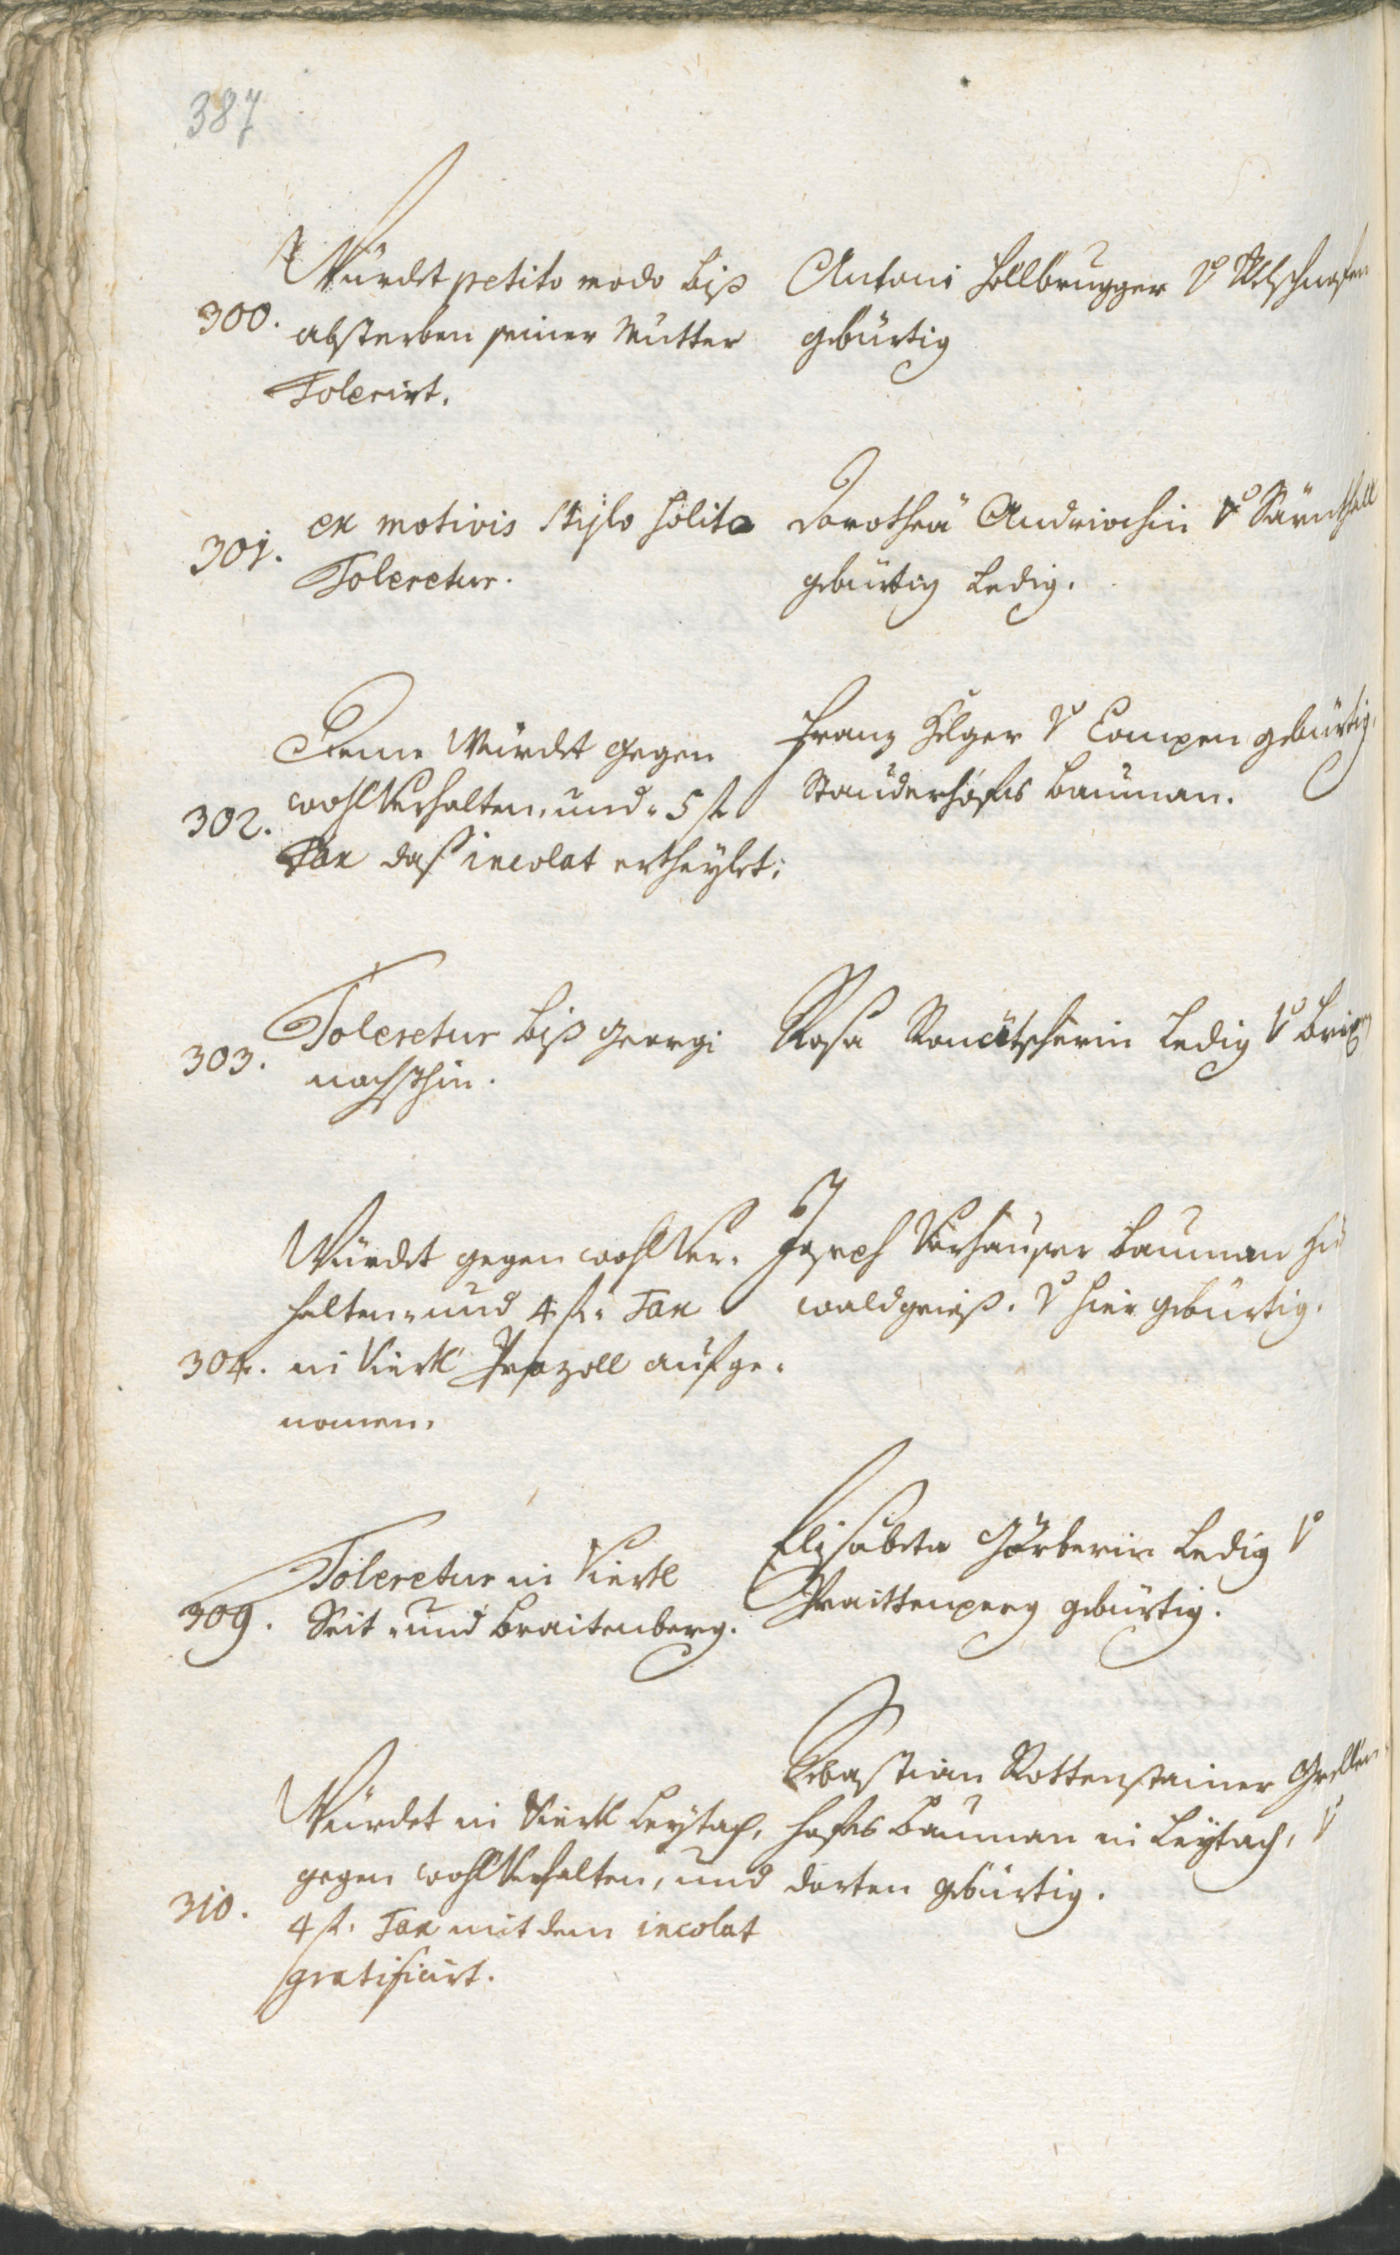 387
300.
Würdet petito modo biß
absterben seiner Mutter
Tolerirt.
Antoni Hellbrugger v Welschnofen
gebürtig
301.
ex motivis stylo solito
Toleretur.
Dorothea Andriochin v Särnthall
gebürtig ledig.
302.
Deme Würdet gegen
wohlverhalten, und 5 f
Tax daß incolat ertheylet:
Franz Hilger v Campen gebürtig.
Stauderhofes bauman.
303.
Toleretur biß Georgi
nachsthin.
Rosa ledig v Brixen
304.
Würdet gegen wohl Ver-
halten, und 4 f. Tax
in Viertl aufge-
nomen.
Joseph bauman zu
waldgrieß. v hier gebürtig.
309.
Toleretur in Viertl
Seit- und Braitenberg.
Elisabeta Gärberin ledig v
Praittenperg gebürtig.
310.
Würdet in Viertl Leytach,
gegen wohlverhalten, und
4 f. Tax mit dem incolat
gratificirt.
Sebastian Rottenstainer
hofes bauman in Leytach, v
dorten gebürtig.